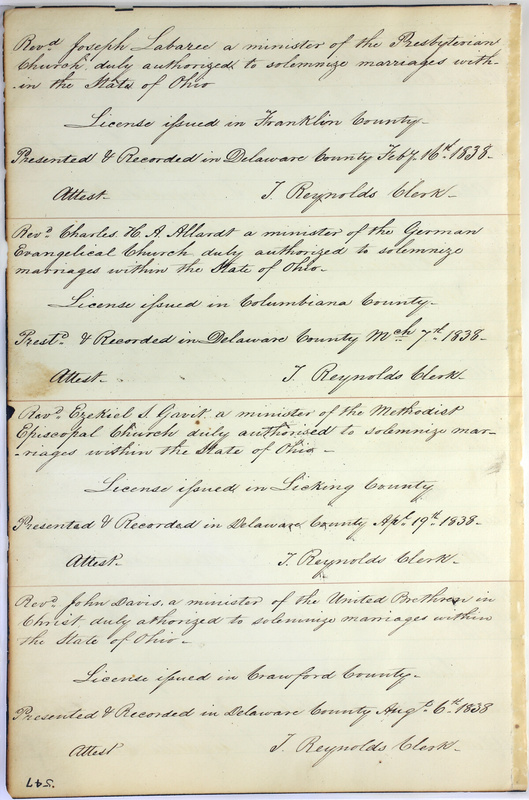 Revd Joseph Labaree a minister of the Presbyterian
Church duly authorized to solemnize marriages with-
-in the State of Ohio
License issued in Franklin County-
Presented & Recorded in Delaware County Feby. 16th 1838-
Attest- T. Reynolds Clerk-
Revd Charles H. A. Allardt a minister of the German
Evangelical Church duly authorized to solemnize
marriages within the State of Ohio-
License issued in Columbiana County-
Prestd & Recorded in Delaware County Mch 7th 1838-
Attest- T. Reynolds Clerk-
Revd Ezekiel S. Gavit, a minister of the Methodist
Episcopal Church duly authorised to solemnize mar-
-riages within the State of Ohio-
License issued in Licking County
Presented & Recorded in Delaware County Apl 19th 1838-
Attest- T. Reynolds Clerk-
Revd John Davis, a minister of the United Brethren in
Christ duly athorized to solemnize marriages within
the State of Ohio-
License issued in Crawford County-
Presented & Recorded in Delaware County Augt 6th 1838
Attest T. Reynolds Clerk-
547